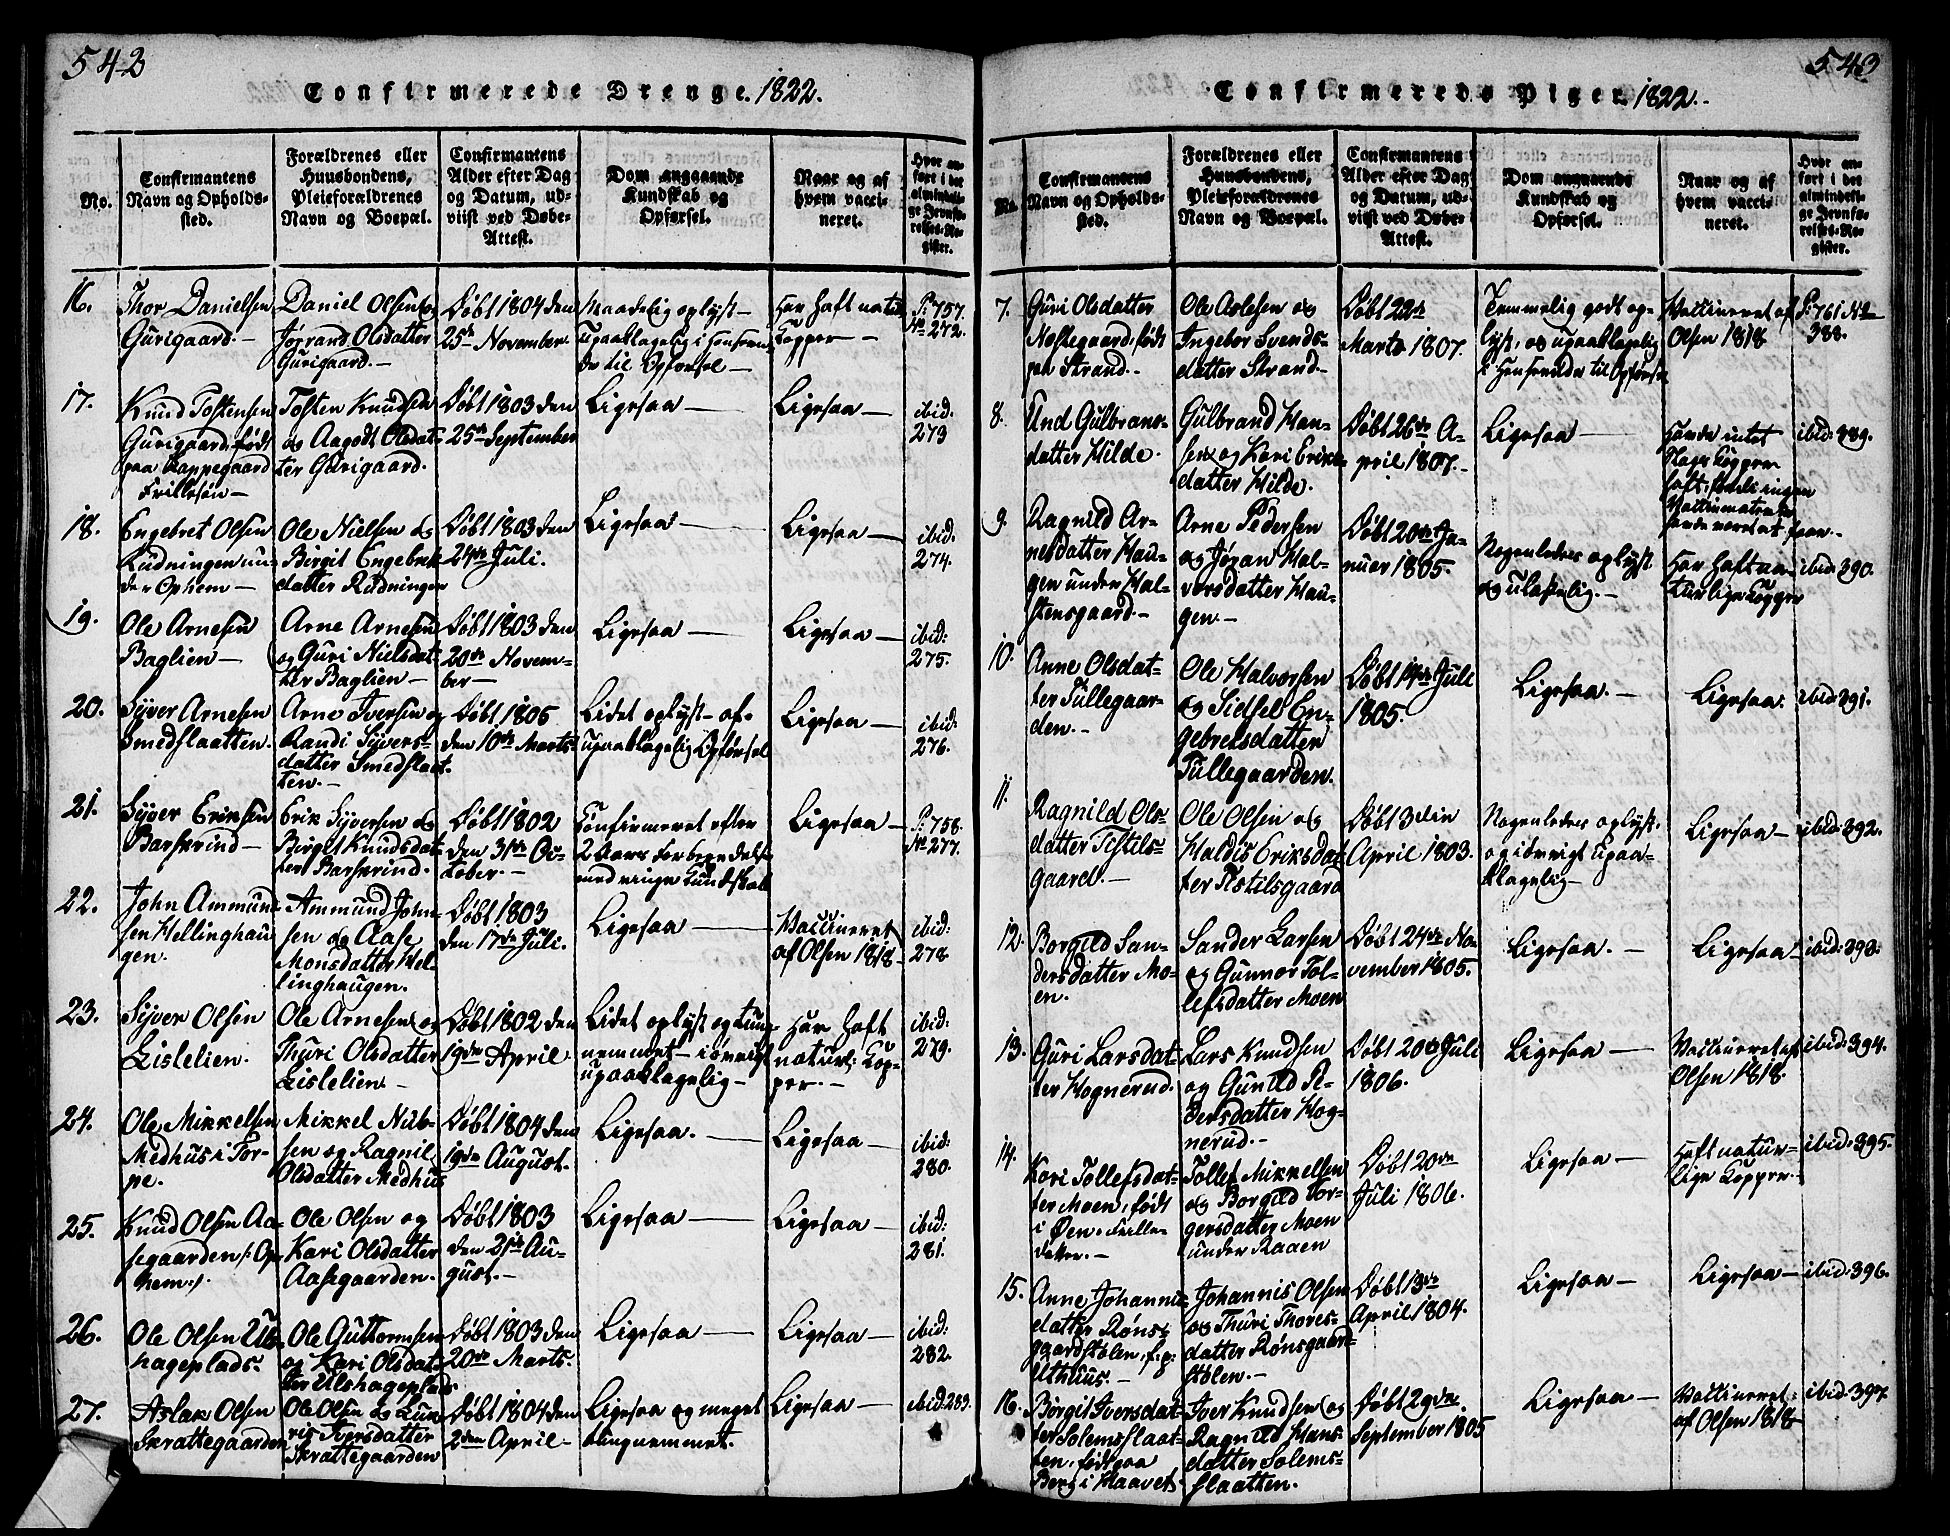 542
Confirmerede Drenge. 1822.
No.
Confirmantens
Navn og Opholds-
sted.
Forældrenes eller
Huusbondens,
Pleieforældrenes
Navn og Boepæl.
Confirmantens
Alder efter Dag
og Datum, ud-
viist ved Døbe-
Attest.
Dom angaaende
Kundskab og
Opførsel.
Naar og af
hvem vacci-
neret.
Hvor an-
ført i det
almindeli-
ge Jevnfø-
relses-Re-
gister.
16.
Thor Danielsen
Gurigaard.
Daniel Olsen og
Jørrand Olsdatter
Gurigaard.
Døbt 1804 den
25de November
Maadelig oplyst
upaaklagelig i Hensee
de til Opførsel
Har haft natu
Kopper
P: 757.
No 272.
17.
Knud Tostensen
Gurigaard, født
paa Rappegaard
Frillesøn
Tosten Knudsen
og Aagodt Olsdat-
ter Gurigaard.
Døbt 1803 den
25de September
Ligesaa
Ligesaa
ibid:
273
18.
Engebret Olsen
Rudningen un-
der Ophem
Ole Nielsen og
Birgit Engebret
datter Rudningen
Døbt 1803 den
24de Juli.
Ligesaa
Ligesaa
ibid.
274.
19.
Ole Arnesen
Baglien
Arne Arnesen
og Guri Nielsdat-
ter Baglien
Døbt 1803 den
20de Novem-
ber
Ligesaa
Ligesaa
ibid:
275.
20.
Syver Arnesen
Smedslaatten.
Arne Iversen og
Randi Syvers-
datter Smedslaat-
ten.
Døbt 1805
den 10de Marts
Lidet oplyst af
upaaklagelig Opførsel
Ligesaa
ibid:
276.
21.
Syver Eriksen
Barskrind
Erik Syversen og
Birgit Knudsdat
ter Barskrind.
Døbt 1802
den 31te Oc-
tober.
Confirmeret efter
2 Aars Forberedelse
med ringe Kundskab
Ligesaa
P: 758.
No 277.
22.
John Ammund
sen Hellinghau
gen.
Ammund John-
sen og Aase
Monsdatter Hel-
linghaugen.
Døbt 1803
den 17de Juli.
Ligesaa
Vaccineret
af Olsen 1818
ibid:
278.
23.
Syver Olsen
Lislelien.
Ole Arnesen og
Thuri Olsdatter
Lislelien
Døbt 1802 den
19de April
Lidet oplyst og tung
nemmet iøvrigt
upaaklagelig
Har haft
naturl: Kop-
per.
ibid:
279.
24.
Ole Mikkelsen
Medhus i Tor-
pe.
Mikkel Nub-
sen og Ragnil
Olsdatter Medhus
Døbt 1804 den
19de August.
Ligesaa.
Ligesaa
ibid:
280.
25.
Knud Olsen Aa-
segaarden /: Op-
hem :/
Ole Olsen og
Kari Olsdatter
Aasegaarden.
Døbt 1803
den 21de Au-
gust.
Ligesaa
Ligesaa
ibid:
281.
26.
Ole Olsen Uls-
hageplads.
Ole Guttormsen
og Kari Olsdat
ter Ulshageplads
Døbt 1803 den
20de Marts.
Ligesaa
Ligesaa
ibid:
282.
27.
Aslak Olsen
Skrattegaarden
Ole Olsen og Gun
ris Iversdatter
Skrattegaarden
Døbt 1804 den
2den April
Ligesaa og meget
tungnemmet.
Ligesaa
ibid: 283.
543
Confirmerede Piger 1822.
No.
Confirmantens
Navn og Opholds-
sted.
Forældrenes eller
Huusbondens,
Pleieforældrenes
Navn og Boepæl.
Confirmantens
Alder efter Dag
og Datum, ud-
viist ved Døbe-
Attest.
Dom angaaende
Kundskab og
Opførsel.
Naar og af
hvem vacci-
neret.
Hvor an-
ført i det
almindeli-
ge Jevnfø-
relses-Re-
gister.
7.
Guri Olsdatter
Nostegaard, født
paa Strand.
Ole Aslesen og
Ingebor Svends-
datter Strand
Døbt 22de
Marts 1807.
Temmelig godt op-
lyst, og upaaklagelig
i Henseende til Opførsel
Vaccineret af
Olsen 1818
P: 761 No
388.
8.
Und Gulbrans-
datter Hilde.
Gulbrand Han-
sen og Kari Eriks
datter Hilde.
Døbt 26de A-
pril 1807.
Ligesaa
Havde intet
Slags Kopper
haft, fordi ingen
Vaccinmaterie
havde været at faae.
ibid: 389.
9.
Ragnild Ar-
nesdatter Hau-
gen under Hal-
stensgaard.
Arne Pedersen
og Jøran Hal-
vorsdatter Hau-
gen.
Døbt 20de Ja-
nuar 1805.
Nogenledes oplyst
og ulastelig.
Har haft na-
turlige Kopper
ibid: 390.
10.
Anne Olsdat-
ter Tullegaar-
den.
Ole Halvorsen
og Sidsel En-
gebretsdatter
Tullegaarden.
Døbt 14de Juli
1805.
Ligesaa.
Ligesaa.
ibid: 391.
11.
Ragnild Ols-
datter Tistils-
gaard.
Ole Olsen og
Haldis Eriksdat
ter Tistilsgaard
Døbt 3die
April 1803.
Nogenledes oplyst,
og iøvrigt upaa-
klagelig
Ligesaa
ibid: 392.
12.
Borgild San-
dersdatter Mo-
en.
Sander Larsen
og Gunnor Tol-
lefsdatter Moen
Døbt 24de No-
vember 1805.
Ligesaa.
Ligesaa
ibid: 393.
13.
Guri Larsdat
ter Hognerud.
Lars Knudsen
og Gunild A-
dersdatter Hog-
nerud.
Døbt 20de Juli
1806.
Ligesaa
Vaccineret af
Olsen 1818.
ibid: 394.
14.
Kari Tollefsdat-
ter Moen, født
i Øen. Frille-
datter.
Tollef Mikkelsen
og Borgild Tor-
gersdatter Moen
under Raaen
Døbt 20de
Juli 1806.
Ligesaa
Haft natur-
lige Kopper.
ibid: 395.
15.
Anne Johannis-
datter Røns-
gaardstølen, f: p:
Uthuus.
Johannis Olsen
og Thuri Thores-
datter Rønsgaard-
stølen.
Døbt 13de
April 1804.
Ligesaa
Ligesaa
ibid: 396.
16.
Børgit Iversdat-
ter Solemsslaat-
ten, født paa
Berg i Haavet
Iver Knudsen og
Ragnild Hans
datter Solems-
slaatten.
Døbt 29de
September 1805
Ligesaa
Vaccineret
af Olsen 1818
ibid: 397.